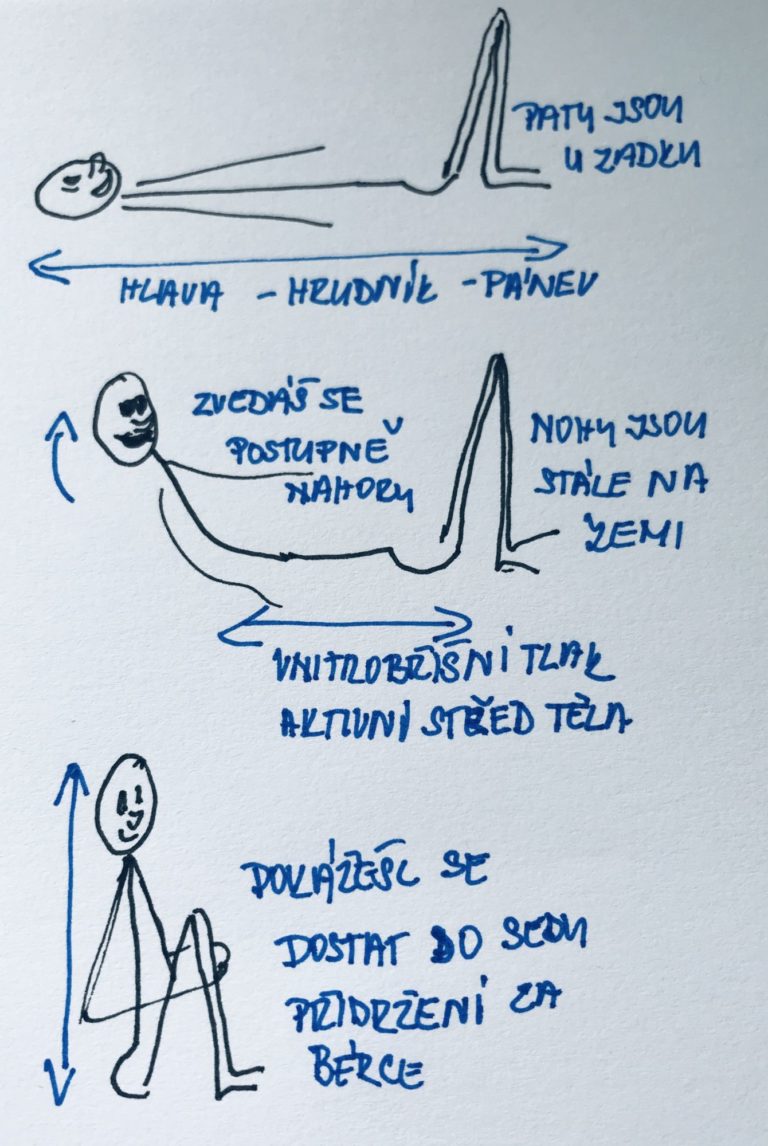 PATY JSOU
U ZADKU
HLAVA - HRUDNÍK - PÁNEV
ZVEDÁŠ SE
POSTUPNĚ
NAHORU
NOHY JSOU
STÁLE NA
ZEMI
VNITROBŘIŠNÍ TLAK
AKTIVNÍ STŘED TĚLA
DOKÁŽEŠ SE
DOSTAT DO SEDU
PŘIDRŽENÍ ZA
BÉRCE